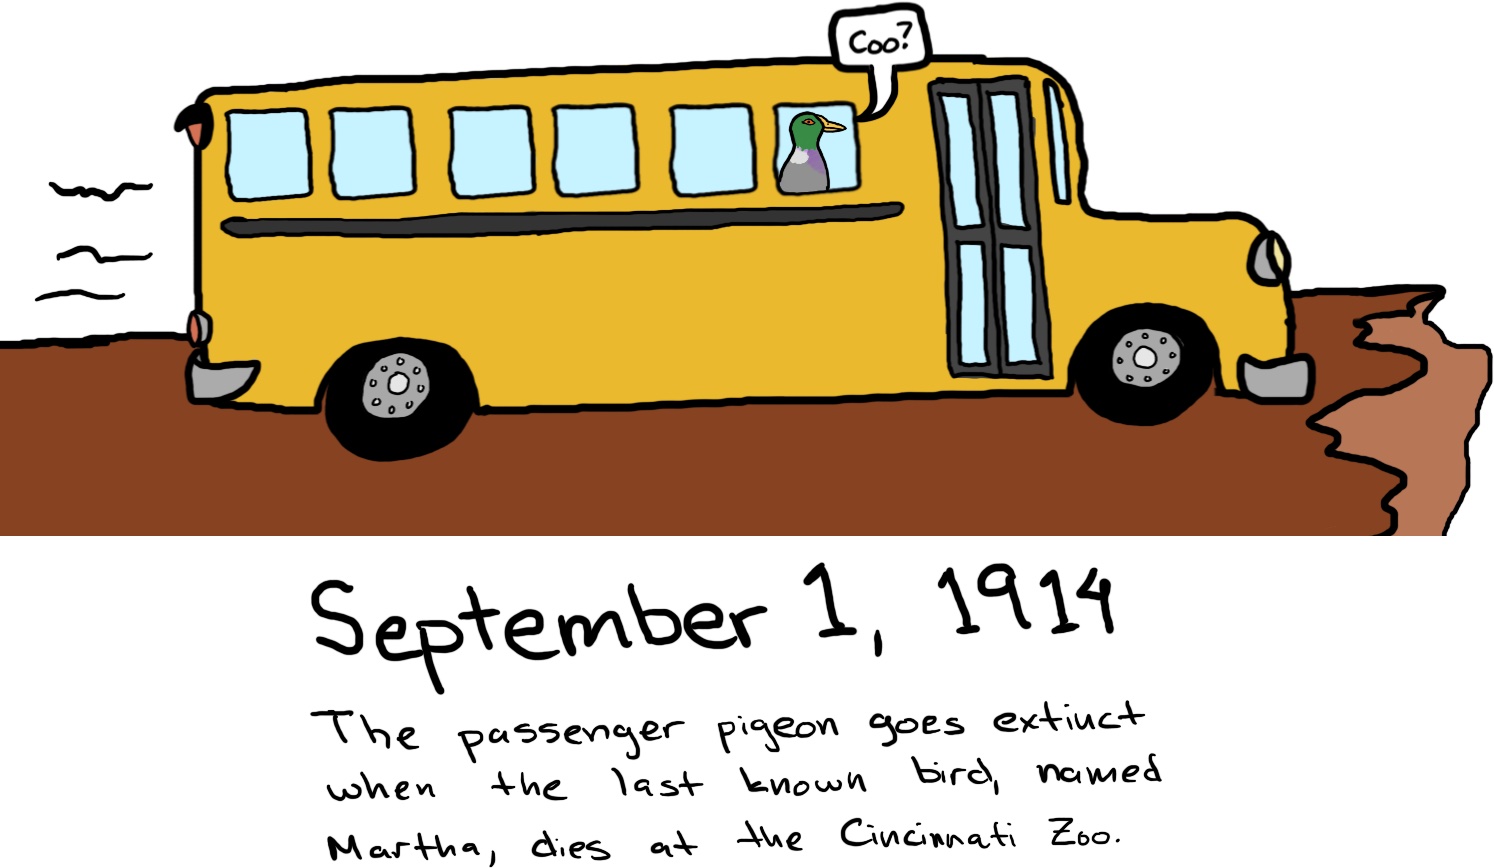 Coo?
September 1, 1914
The passenger pigeon goes extinct
when the last known bird, named
Martha, dies at the Cincinnati Zoo.